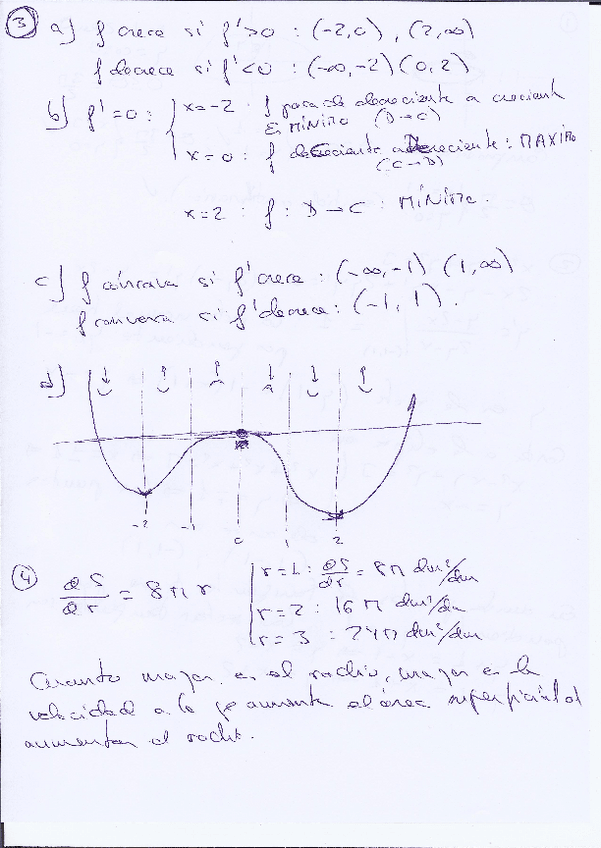 3 a) f crece si f'>0 : (-2,0) , (2,∞)
f decrece si f'<0 : (-∞,-2) (0,2)
b) f'=0 : x=-2 . f pasa de decreciente a creciente
Es MÍNIMO (D→C)
x=0 : f creciente a decreciente : MAXIMO
(C→D)
x=2 : f : D→C : MÍNIMO.
c) f cóncava si f' crece : (-∞,-1) (1,∞)
f convexa si f' decrece : (-1,1) .
d)
-2 -1 0 1 2
4 ∂S/∂r = 8πr
r=1 : ∂S/∂r = 8π dm²/dm
r=2 : 16π dm²/dm
r=3 : 24π dm²/dm
Cuanto mayor es el radio, mayor es la
velocidad a la que aumenta el área superficial al
aumentar el radio.